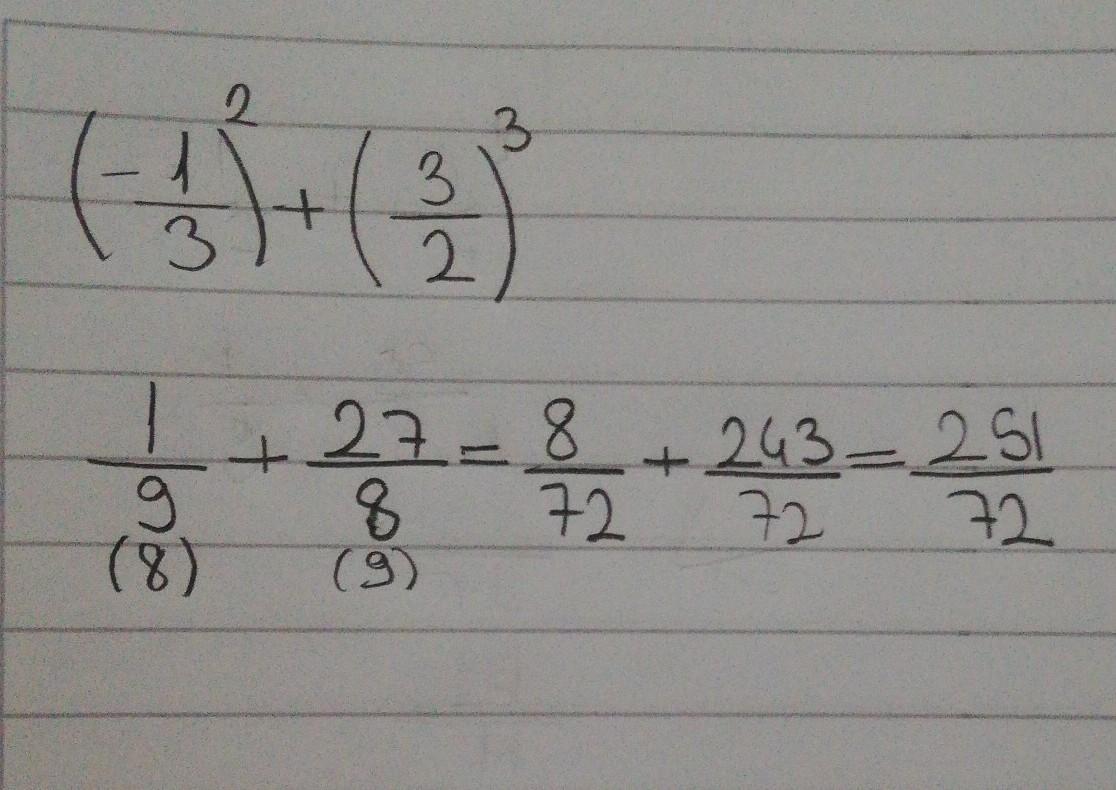 (-1/3)² + (3/2)³
1/9 + 27/8 = 8/72 + 243/72 = 251/72
(8) (9)